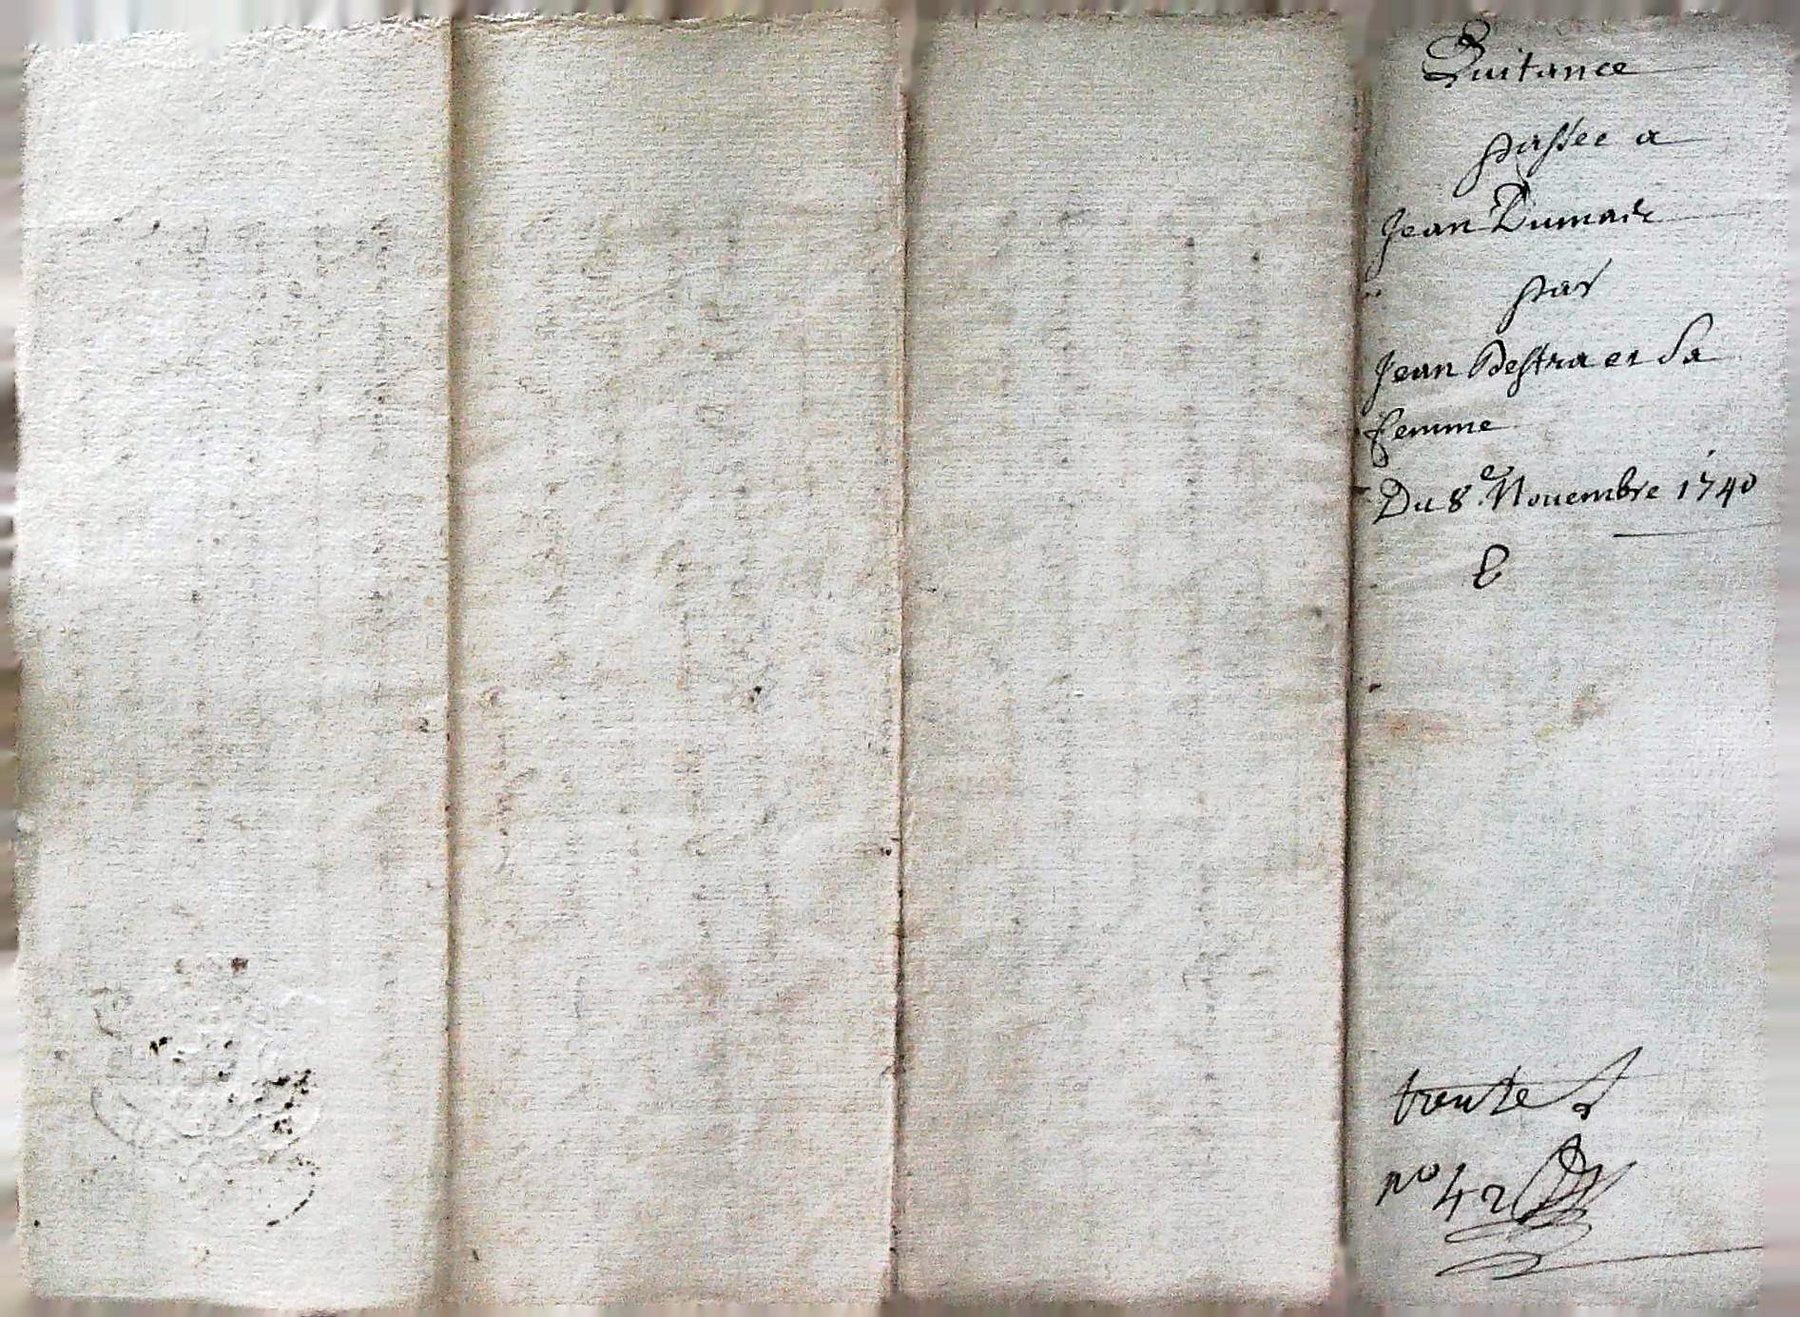 Quitance
passée a
Jean Dumas
par
Jean Destra et Sa
femme
Du 8e Novembre 1740
trente s
no 42